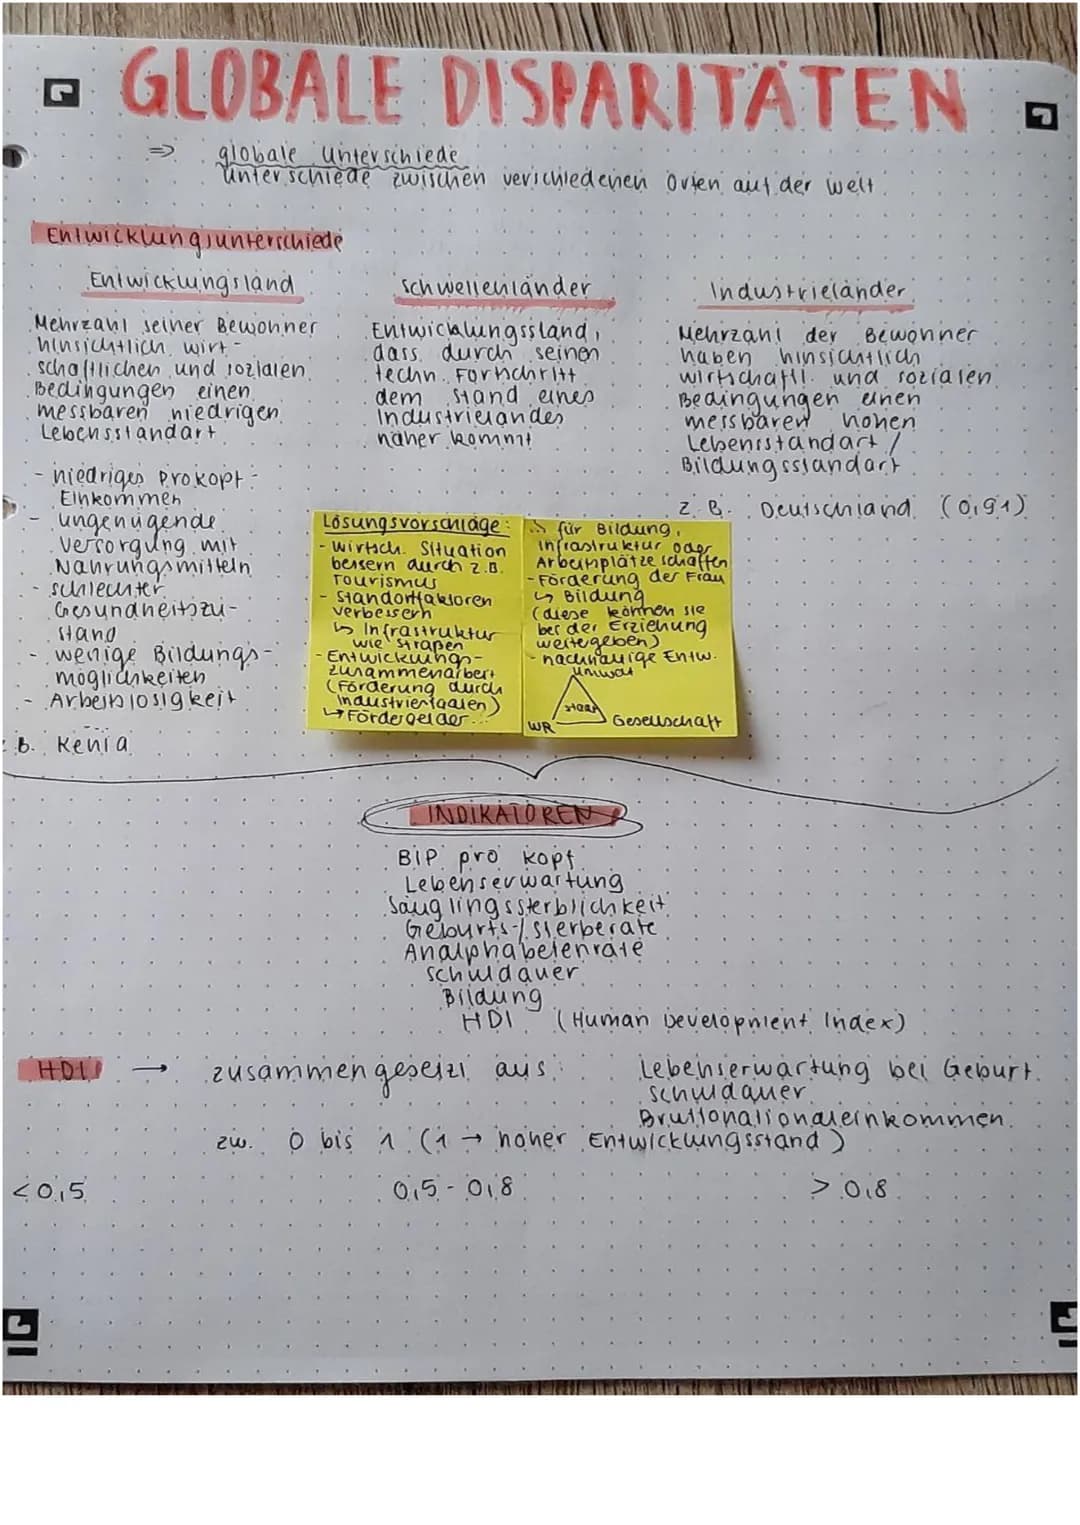 GLOBALE DISPARITÄTEN
⇒ globale Unterschiede
Unterschiede zwischen verschiedenen Orten auf der Welt
Entwicklungsunterschiede
Entwicklungsland
Mehrzahl seiner Bewohner
hinsichtlich wirt-
schaftlichen und sozialen
Bedingungen einen
messbaren niedrigen
Lebensstandart
- niedriges Prokopf-
Einkommen
- ungenügende
Versorgung mit
Nahrungsmitteln
- schlechter
Gesundheitszu-
stand
- wenige Bildungs-
möglichkeiten
- Arbeitslosigkeit
z.B. Kenia
Schwellenländer
Entwicklungssland,
dass durch seinen
techn. Fortschritt
dem Stand eines
Industrielandes
näher kommt
Industrieländer
Mehrzahl der Bewohner
haben hinsichtlich
wirtschaftl. und sozialen
Bedingungen einen
messbaren hohen
Lebensstandart /
Bildungsstandart
z.B. Deutschland (0,91)
Lösungsvorschläge:
- wirtsch. Situation
bessern durch z.B.
Tourismus
- Standortfaktoren
verbessern
↳ Infrastruktur
wie Straßen
- Entwicklungs-
zusammenarbeit
(Förderung durch
Industriestaaten)
↳ Fördergelder...
... für Bildung,
Infrastruktur oder
Arbeitsplätze schaffen
- Förderung der Frau
↳ Bildung
(diese können sie
bei der Erziehung
weitergeben)
- nachhaltige Entw.
Umwelt
Staat
WR Gesellschaft
INDIKATOREN
BIP pro Kopf
Lebenserwartung
Säuglingssterblichkeit
Geburts-/Sterberate
Analphabetenrate
Schuldauer
Bildung
HDI (Human Development Index)
HDI → zusammengesetzt aus: Lebenserwartung bei Geburt
Schuldauer
Bruttonationaleinkommen
zw. 0 bis 1 (1 → hoher Entwicklungsstand)
< 0,5 0,5 - 0,8 > 0,8